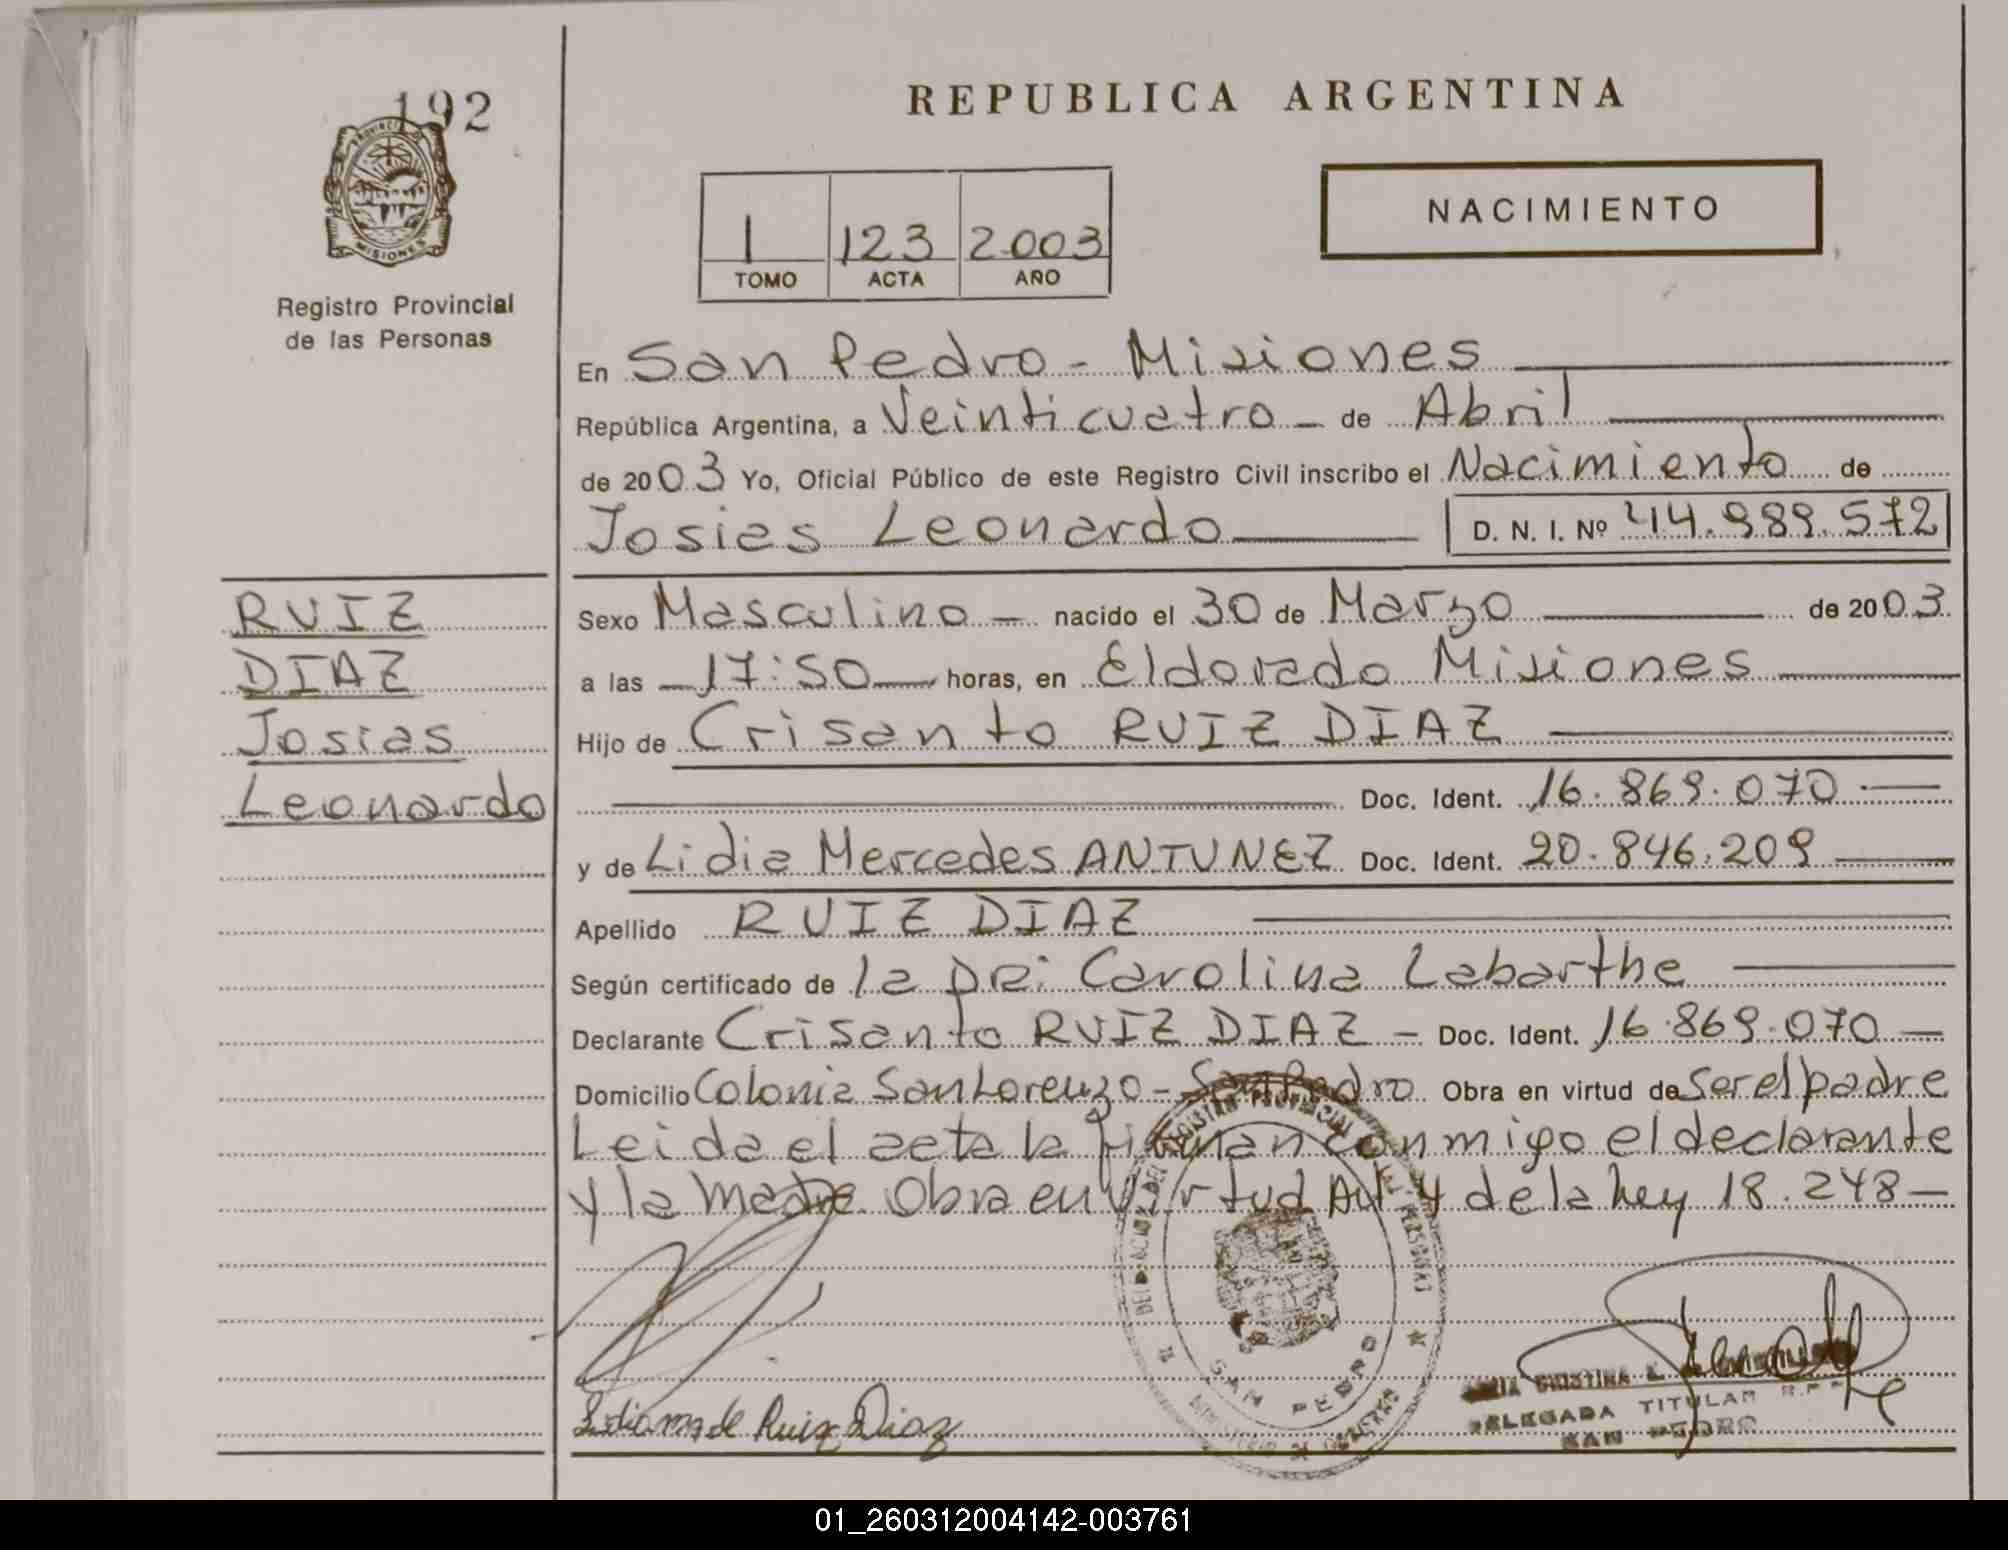 192
PROVINCIA DE
MISIONES
Registro Provincial
de las Personas
REPUBLICA ARGENTINA
1 123 2003
TOMO ACTA AÑO
NACIMIENTO
En San Pedro - Misiones
República Argentina, a Veinticuatro de Abril
de 2003 Yo, Oficial Público de este Registro Civil inscribo el Nacimiento de
Josias Leonardo D. N. I. Nº 44.989.572
RUIZ
DIAZ
Josias
Leonardo
Sexo Masculino nacido el 30 de Marzo de 2003
a las 17:50 horas, en Eldorado Misiones
Hijo de Crisanto RUIZ DIAZ
Doc. Ident. 16.869.070
y de Lidia Mercedes ANTUNEZ Doc. Ident. 20.846.209
Apellido RUIZ DIAZ
Según certificado de la DR: Carolina Labarthe
Declarante Crisanto RUIZ DIAZ - Doc. Ident. 16.869.070
Domicilio Colonia San Lorenzo - San Pedro Obra en virtud de Ser el padre
Leida el acta la firman conmigo el declarante
y la madre Obra en virtud Art 4 de la Ley 18.248
SAN PEDRO
Lidia m de Ruiz Diaz
CRISTINA
DELEGADA TITULAR R.P.P
SAN PEDRO
01_260312004142-003761